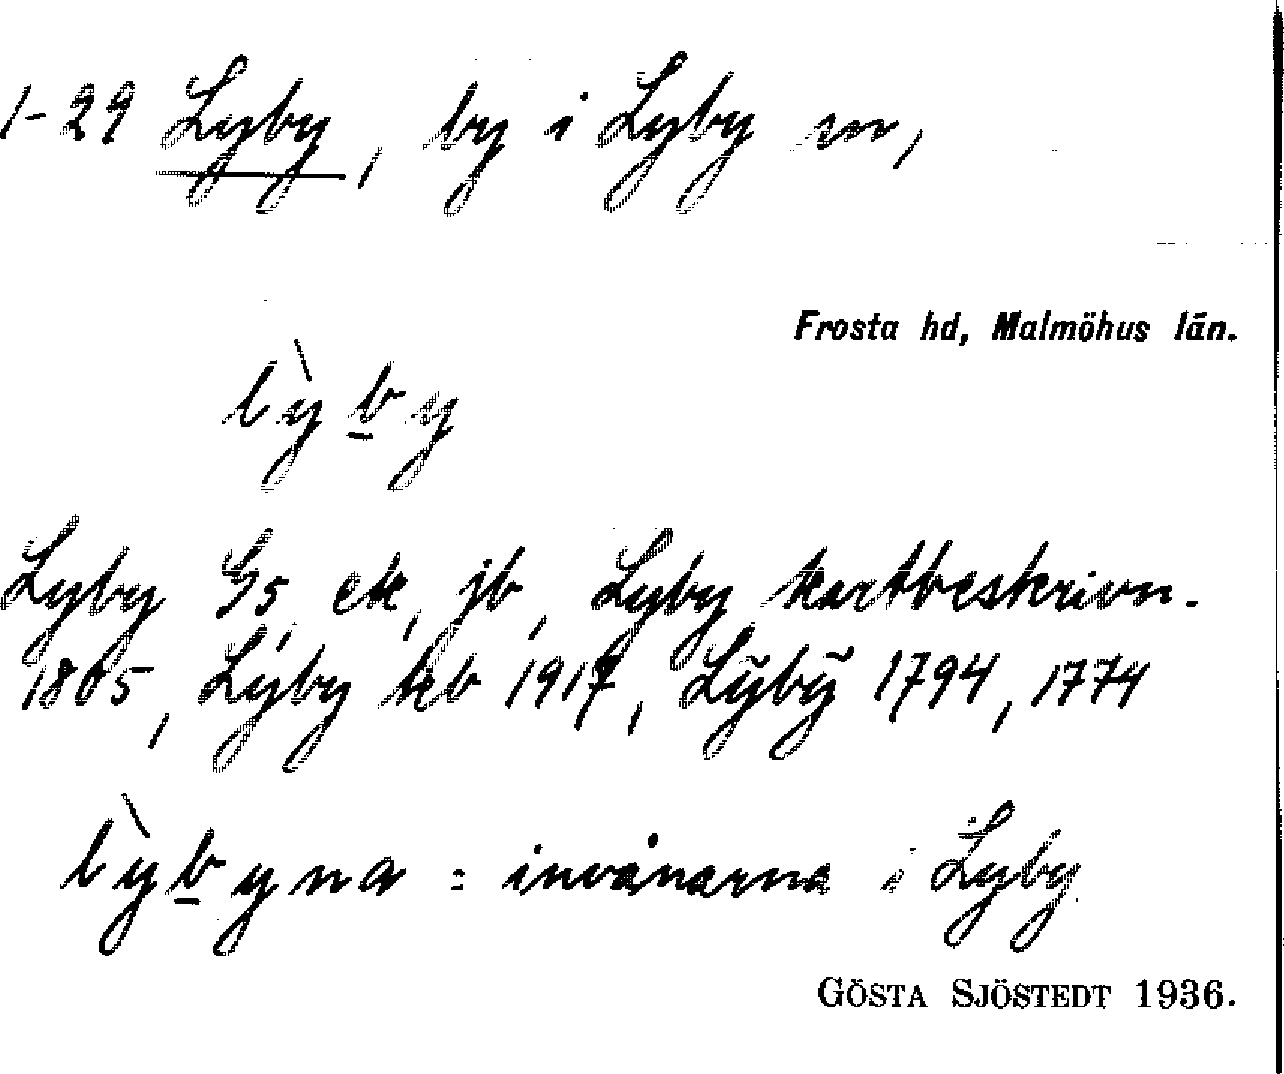 1-29 Lyby, by i Lyby sn,
Frosta hd, Malmöhus län.
lỳby
Lyby Gs, ek, jb, Lyby kartbeskrivn.
1805, Lyby kb 1917, Lÿbÿ 1794, 1774
lỳbyna = invånarna i Lyby
GÖSTA SJÖSTEDT 1936.